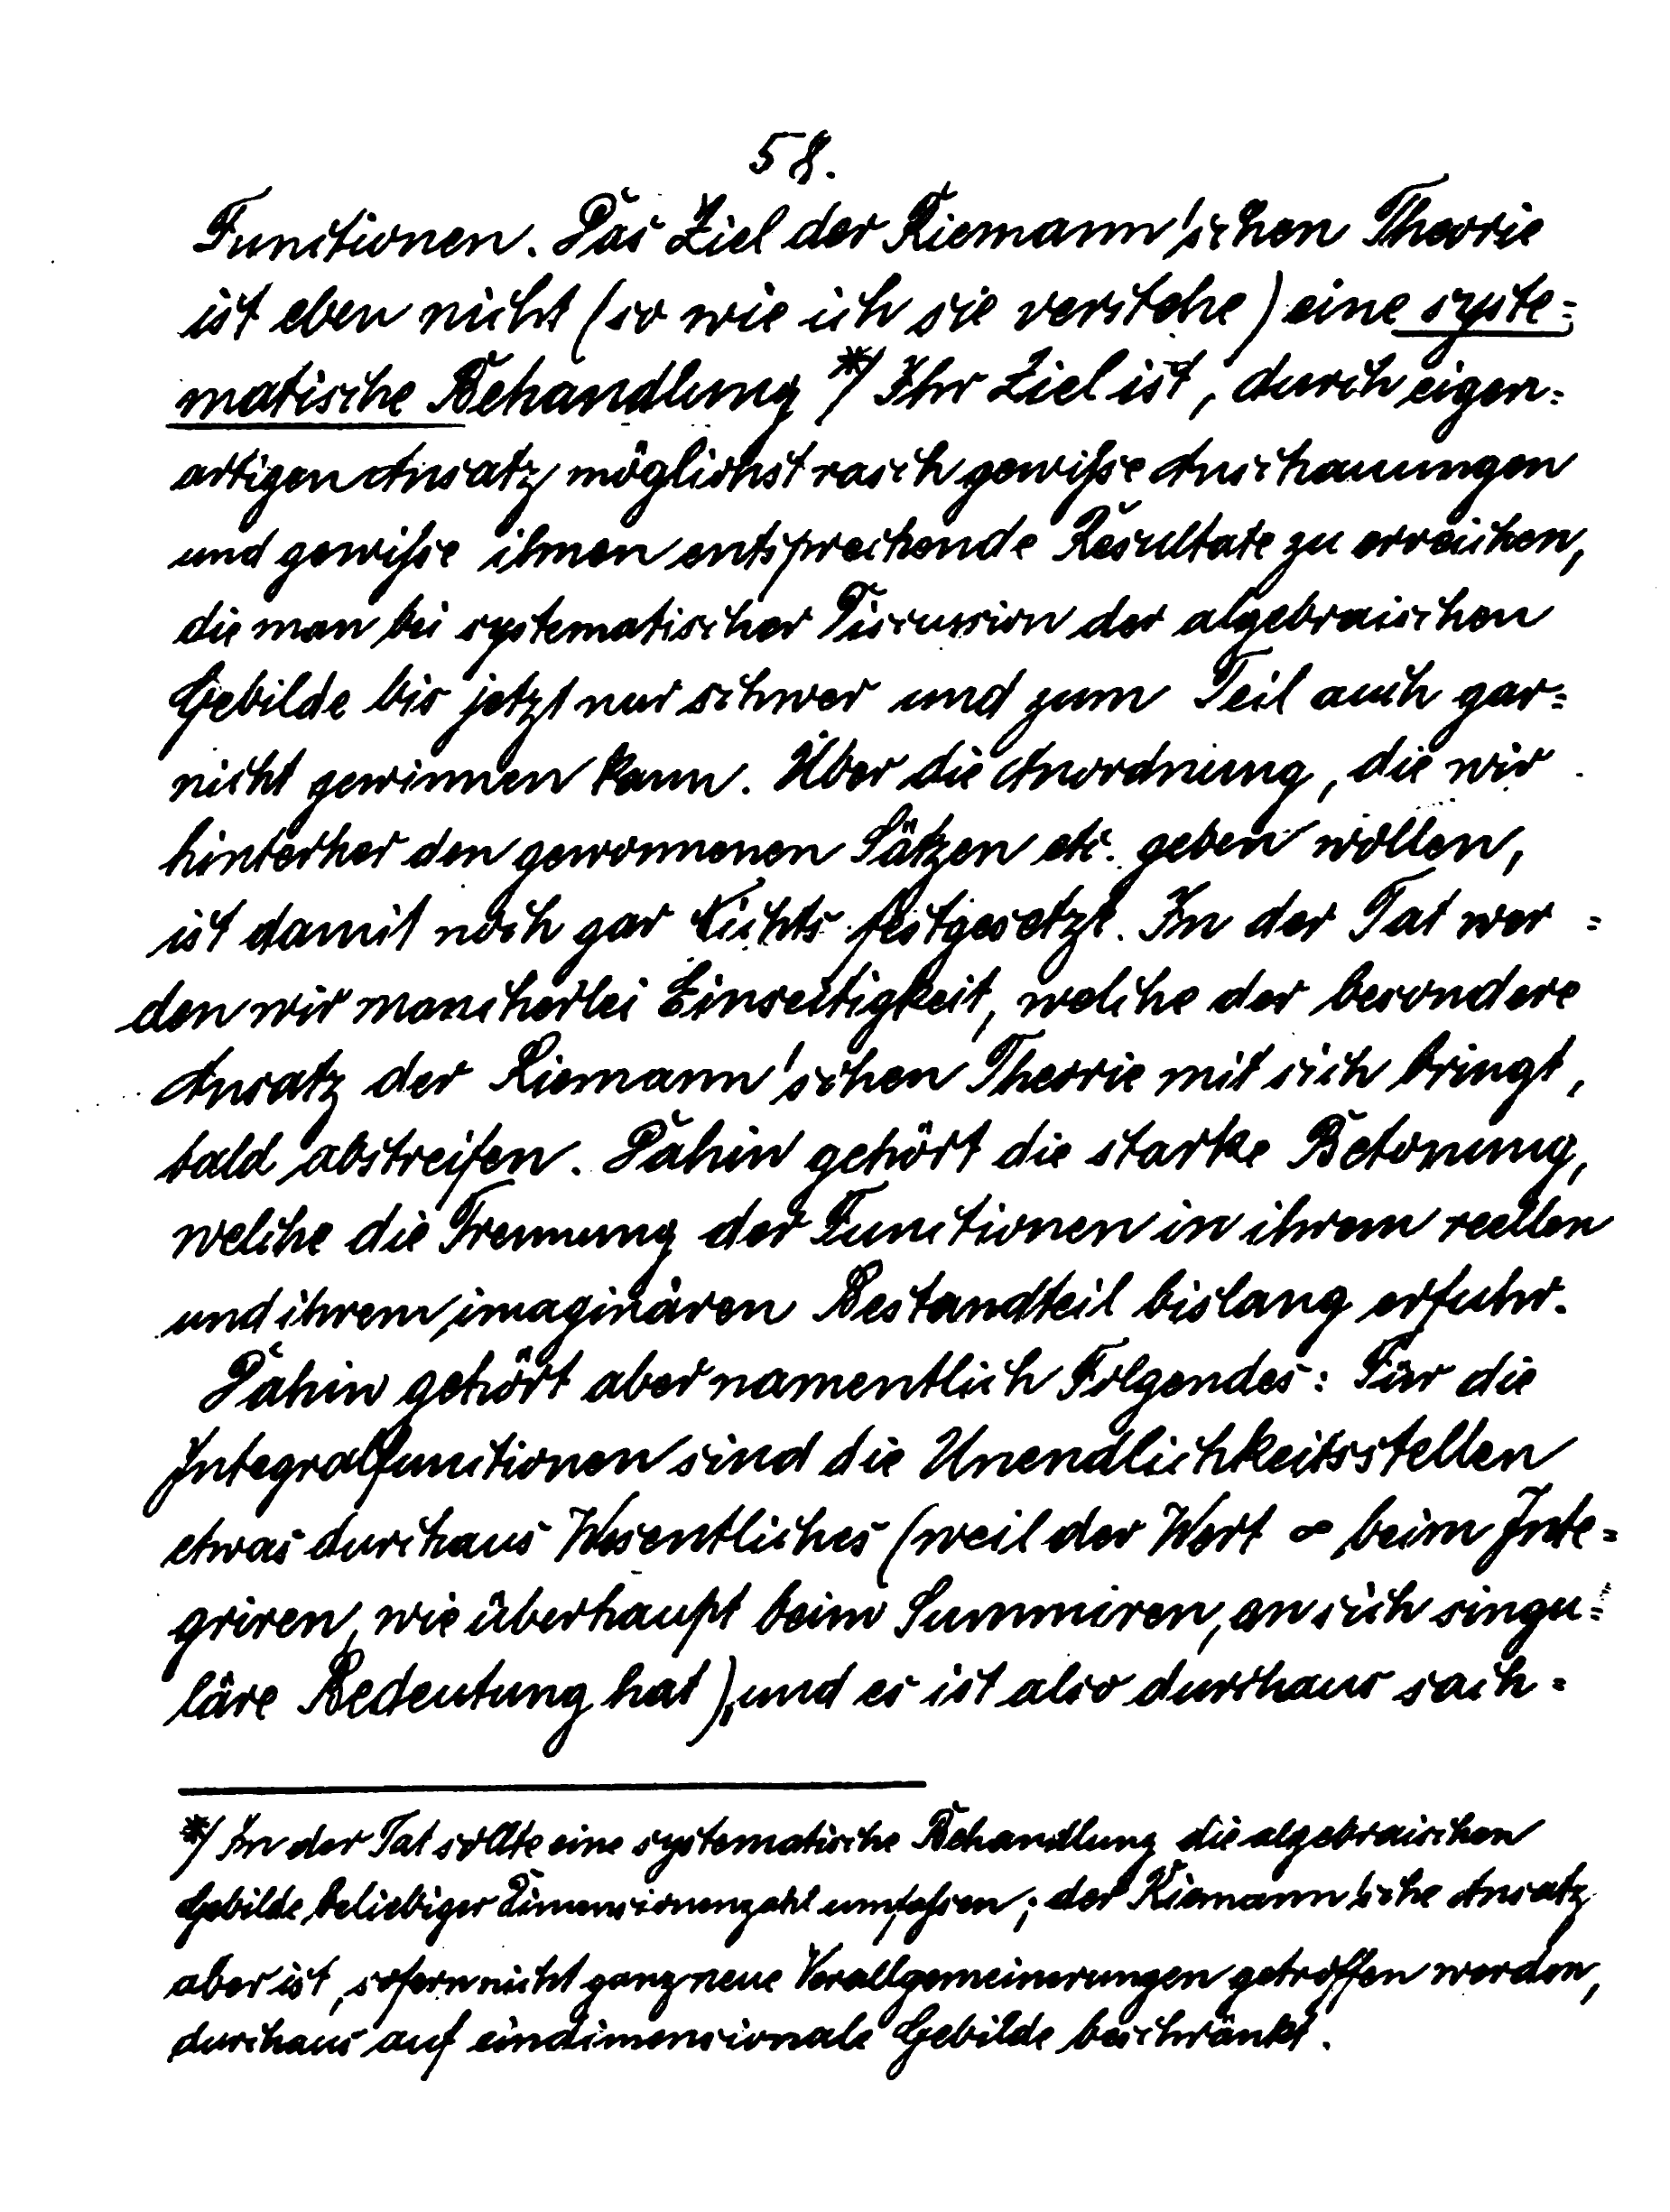 58.
Functionen. Das Ziel der Riemann'schen Theorie
ist eben nicht (so wie ich sie verstehe) eine syste=
matische Behandlung *) Ihr Ziel ist, durch eigen=
artigen Ansatz möglichst rasch gewiße Anschauungen
und gewiße ihnen entsprechende Resultate zu erreichen,
die man bei systematischer Discussion der algebraischen
Gebilde bis jetzt nur schwer und zum Teil auch gar=
nicht gewinnen kann. Über die Anordnung, die wir
hinterher den gewonnenen Sätzen etc. geben wollen,
ist damit noch gar Nichts festgesetzt. In der Tat wer=
den wir mancherlei Einseitigkeit, welche der besondere
Ansatz der Riemann'schen Theorie mit sich bringt,
bald abstreifen. Dahin gehört die starke Betonung,
welche die Trennung der Functionen in ihrem reellen
und ihrem imaginären Bestandteil bislang erfuhr.
Dahin gehört aber namentlich Folgendes: Für die
Integralfunctionen sind die Unendlichkeitsstellen
etwas durchaus Wesentliches (weil der Wert ∞ beim Inte=
griren, wie überhaupt beim Summiren, an sich singu=
läre Bedeutung hat), und es ist also durchaus sach=
*) In der Tat sollte eine systematische Behandlung die algebraischen
Gebilde beliebiger Dimensionenzahl umfaßen; der Riemann'sche Ansatz
aber ist, sofern nicht ganz neue Verallgemeinerungen getroffen werden,
durchaus auf eindimensionale Gebilde beschränkt.